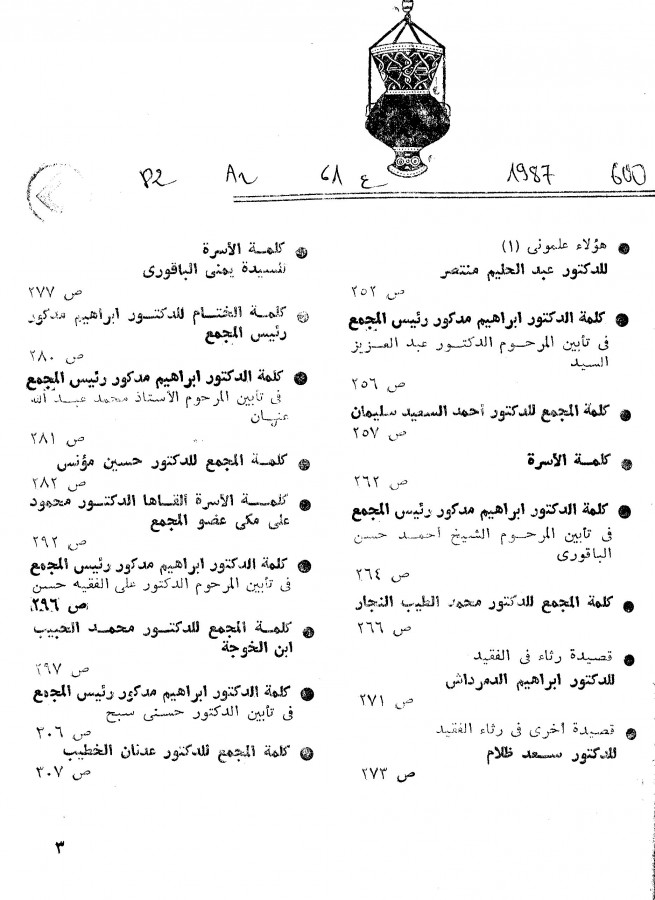 600 1987 ع 61 An P2
هؤلاء علمونى (١)
للدكتور عبد الحليم منتصر
ص ٢٥٢
كلمة الدكتور ابراهيم مدكور رئيس المجمع
فى تأبين المرحوم الدكتور عبد العزيز
السيد
ص ٢٥٦
كلمة المجمع للدكتور أحمد السعيد سليمان
ص ٢٥٧
كلمة الأسرة
ص ٢٦٢
كلمة الدكتور ابراهيم مدكور رئيس المجمع
فى تأبين المرحوم الشيخ أحمد حسن
الباقورى
ص ٢٦٤
كلمة المجمع للدكتور محمد الطيب النجار
ص ٢٦٦
قصيدة رثاء فى الفقيد
للدكتور ابراهيم الدمرداش
ص ٢٧١
قصيدة أخرى فى رثاء الفقيد
للدكتور سعد ظلام
ص ٢٧٣
كلمة الأسرة
للسيدة يمنى الباقورى
ص ٢٧٧
كلمة الختام للدكتور ابراهيم مدكور
رئيس المجمع
ص ٢٨٠
كلمة الدكتور ابراهيم مدكور رئيس المجمع
فى تأبين المرحوم الأستاذ محمد عبد الله
عنان
ص ٢٨١
كلمة المجمع للدكتور حسين مؤنس
ص ٢٨٢
كلمة الأسرة ألقاها الدكتور محمود
على مكى عضو المجمع
ص ٢٩٢
كلمة الدكتور ابراهيم مدكور رئيس المجمع
فى تأبين المرحوم الدكتور على الفقيه حسن
ص ٢٩٦
كلمة المجمع للدكتور محمد الحبيب
ابن الخوجة
ص ٢٩٧
كلمة الدكتور ابراهيم مدكور رئيس المجمع
فى تأبين الدكتور حسنى سبح
ص ٣٠٦
كلمة المجمع للدكتور عدنان الخطيب
ص ٣٠٧
٣